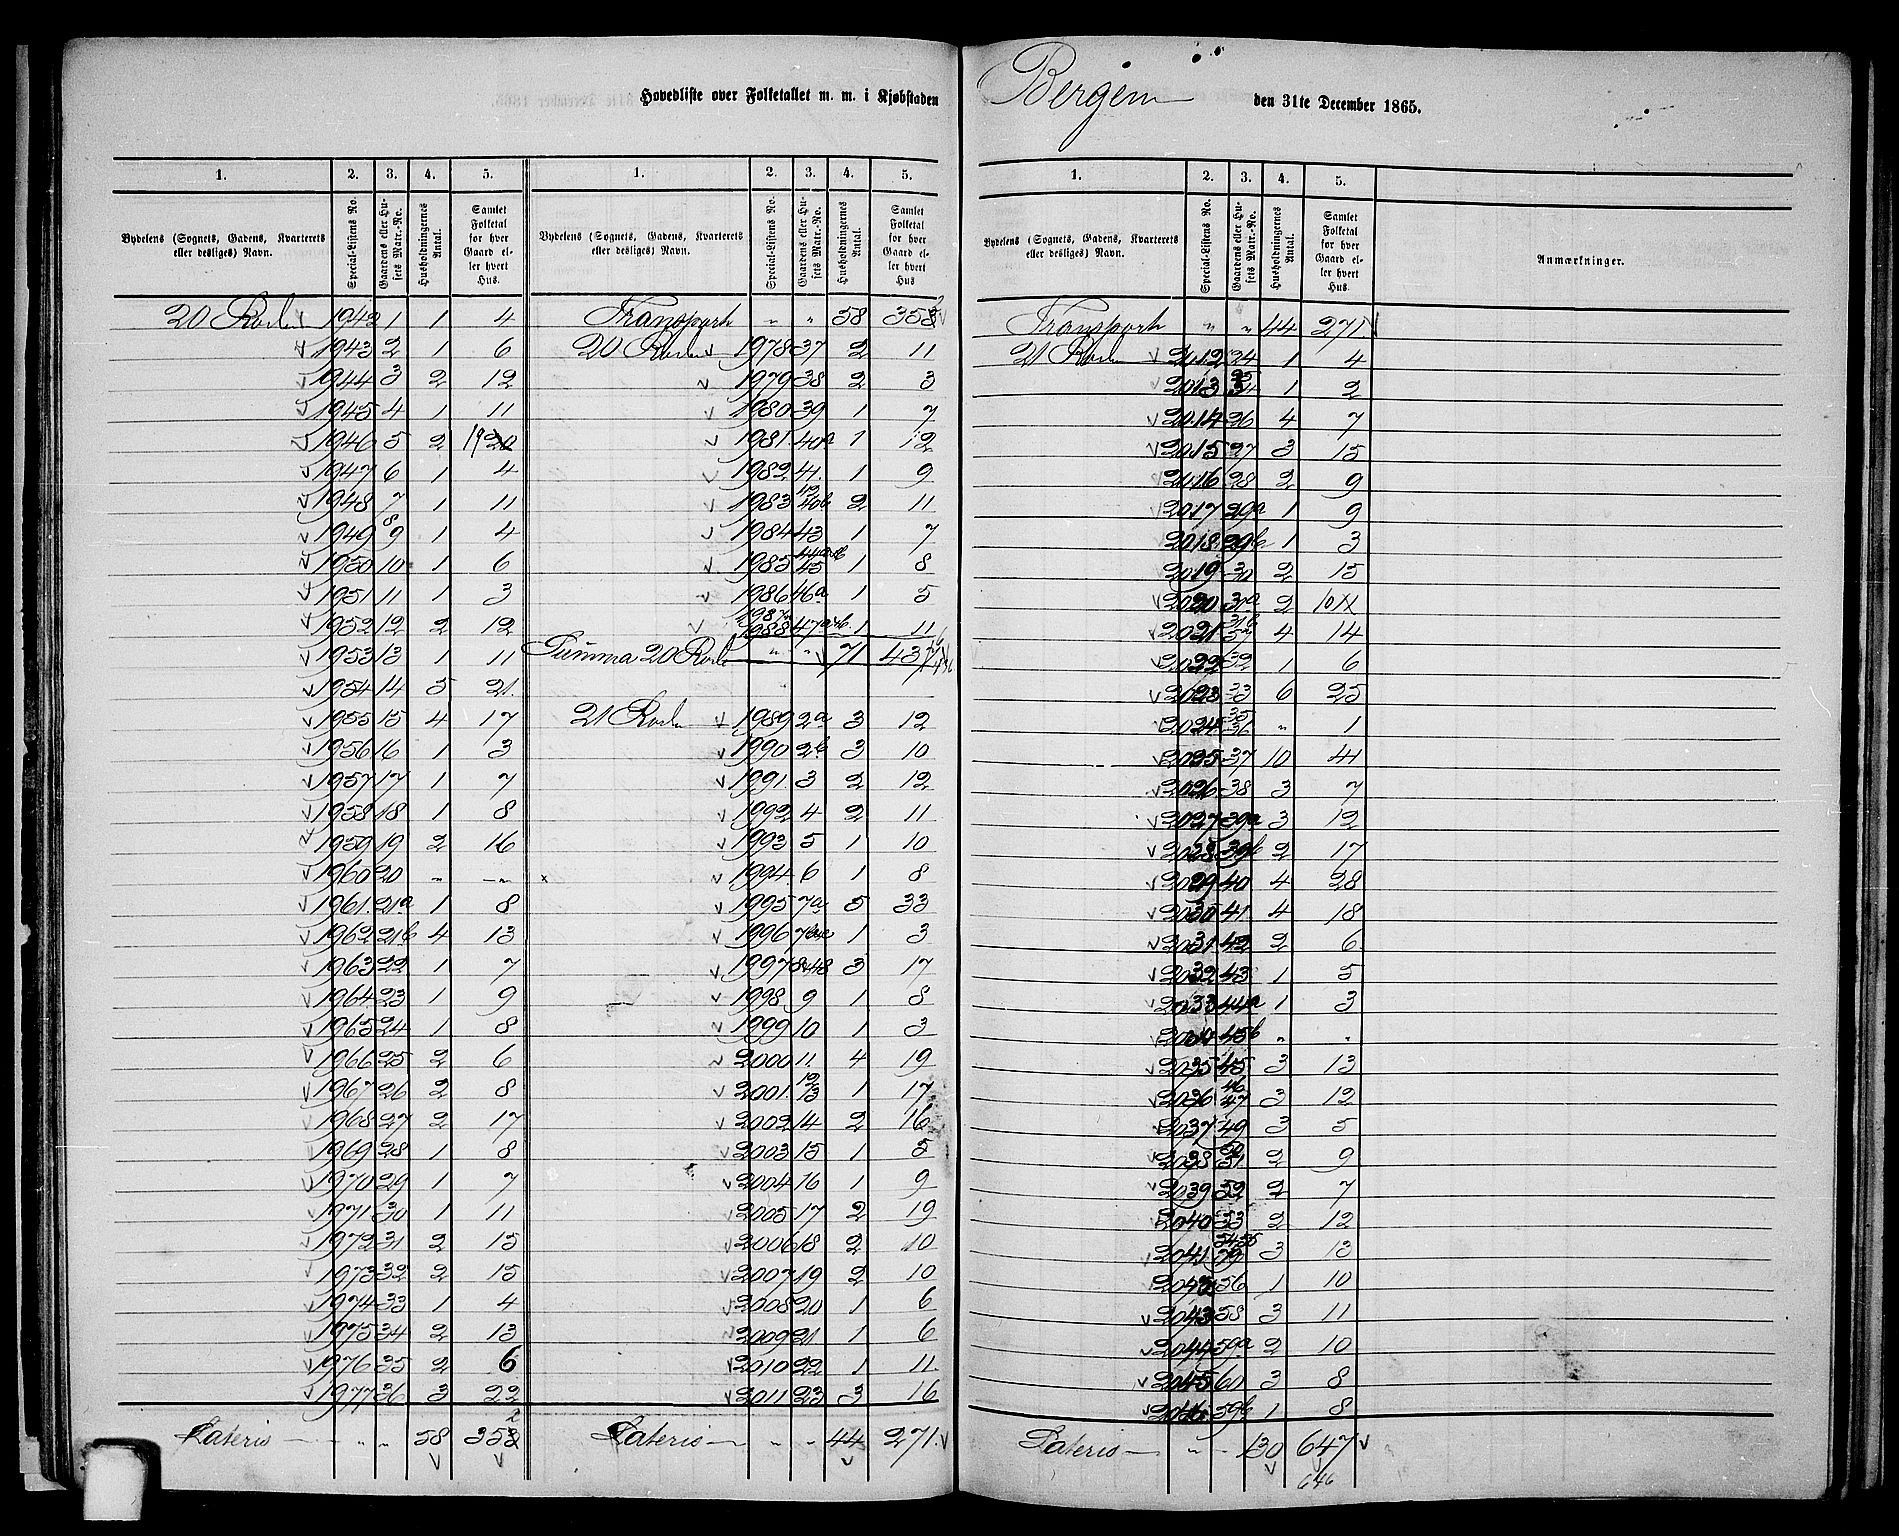 Hovedliste over Folketallet m. m. i Kjøbstaden Bergen den 31te December 1865.
1. 2. 3. 4. 5. 1. 2. 3. 4. 5.
Bydelens (Sognets, Gadens, Kvarterets eller desliges) Navn. Special-Listens No. Gaardens eller Husets Matr.-No. Husholdningernes Antal. Samlet Folketal for hver Gaard eller hvert Hus. Bydelens (Sognets, Gadens, Kvarterets eller desliges) Navn. Special-Listens No. Gaardens eller Husets Matr.-No. Husholdningernes Antal. Samlet Folketal for hver Gaard eller hvert Hus
20 Rode 1942 1 1 4 Transport " " 58 352
1943 2 1 6 20 Rode 1978 37 2 11
1944 3 2 12 1979 38 2 3
1945 4 1 11 1980 39 1 7
1946 5 2 19 1981 40a 1 12
1947 6 1 4 1982 41 1 9
1948 7 1 11 1983 40b 2 11
1949 8 9 1 4 1984 43 1 7
1950 10 1 6 1985 45 1 8
1951 11 1 3 1986 46a 1 5
1952 12 2 12 1987 1988 47a 1 11
1953 13 1 11 Summa 20 Rode " " 71 437
1954 14 5 21
1955 15 4 17 21 Rode 1989 2a 3 12
1956 16 1 3 1990 2b 3 10
1957 17 1 7 1991 3 2 12
1958 18 1 8 1992 4 2 11
1959 19 2 16 1993 5 1 10
1960 20 " " 1994 6 1 8
1961 21a 1 8 1995 7a 5 33
1962 21b 4 13 1996 1 3
1963 22 1 7 1997 8 48 3 17
1964 23 1 9 1998 9 1 8
1965 24 1 8 1999 10 1 3
1966 25 2 6 2000 11 4 19
1967 26 2 8 2001 12 13 1 17
1968 27 2 17 2002 14 2 16
1969 28 1 8 2003 15 1 5
1970 29 1 7 2004 16 1 9
1971 30 1 11 2005 17 2 19
1972 31 2 15 2006 18 2 10
1973 32 2 15 2007 19 2 10
1974 33 1 4 2008 20 1 6
1975 34 2 13 2009 21 1 6
1976 35 2 6 2010 22 1 11
1977 36 3 22 2011 23 3 16
Lateris " " 58 352 Lateris " " 44 271
1. 2. 3. 4. 5.
Bydelens (Sognets, Gadens, Kvarterets eller desliges) Navn. Special-Listens No. Gaardens eller Husets Matr.-No. Husholdningernes Antal. Samlet Folketal for hver Gaard eller hvert Hus. Anmærkninger.
Transport " " 44 271
21 Rode 2012 24 1 4
2013 1 2
2014 26 4 7
2015 27 3 15
2016 28 2 9
2017 29a 1 9
2018 29b 1 3
2019 30 2 15
2020 31a 2 10
2021 31b 57 4 14
2022 32 1 6
2023 33 6 25
2024 35 36 " 1
2025 37 10 41
2026 38 3 7
2027 39a 3 12
2028 39b 2 17
2029 40 4 28
2030 41 4 18
2031 42 2 6
2032 43 1 5
2033 44a 1 3
2034 45b " "
2035 45 3 13
2036 46 47 3 12
2037 49 3 5
2038 50 51 2 9
2039 52 2 7
2040 53 2 12
2041 54 55 79 3 13
2042 56 1 10
2043 58 3 11
2044 59a 2 10
2045 60 3 8
2046 59b 1 8
Lateris " " 130 647
646